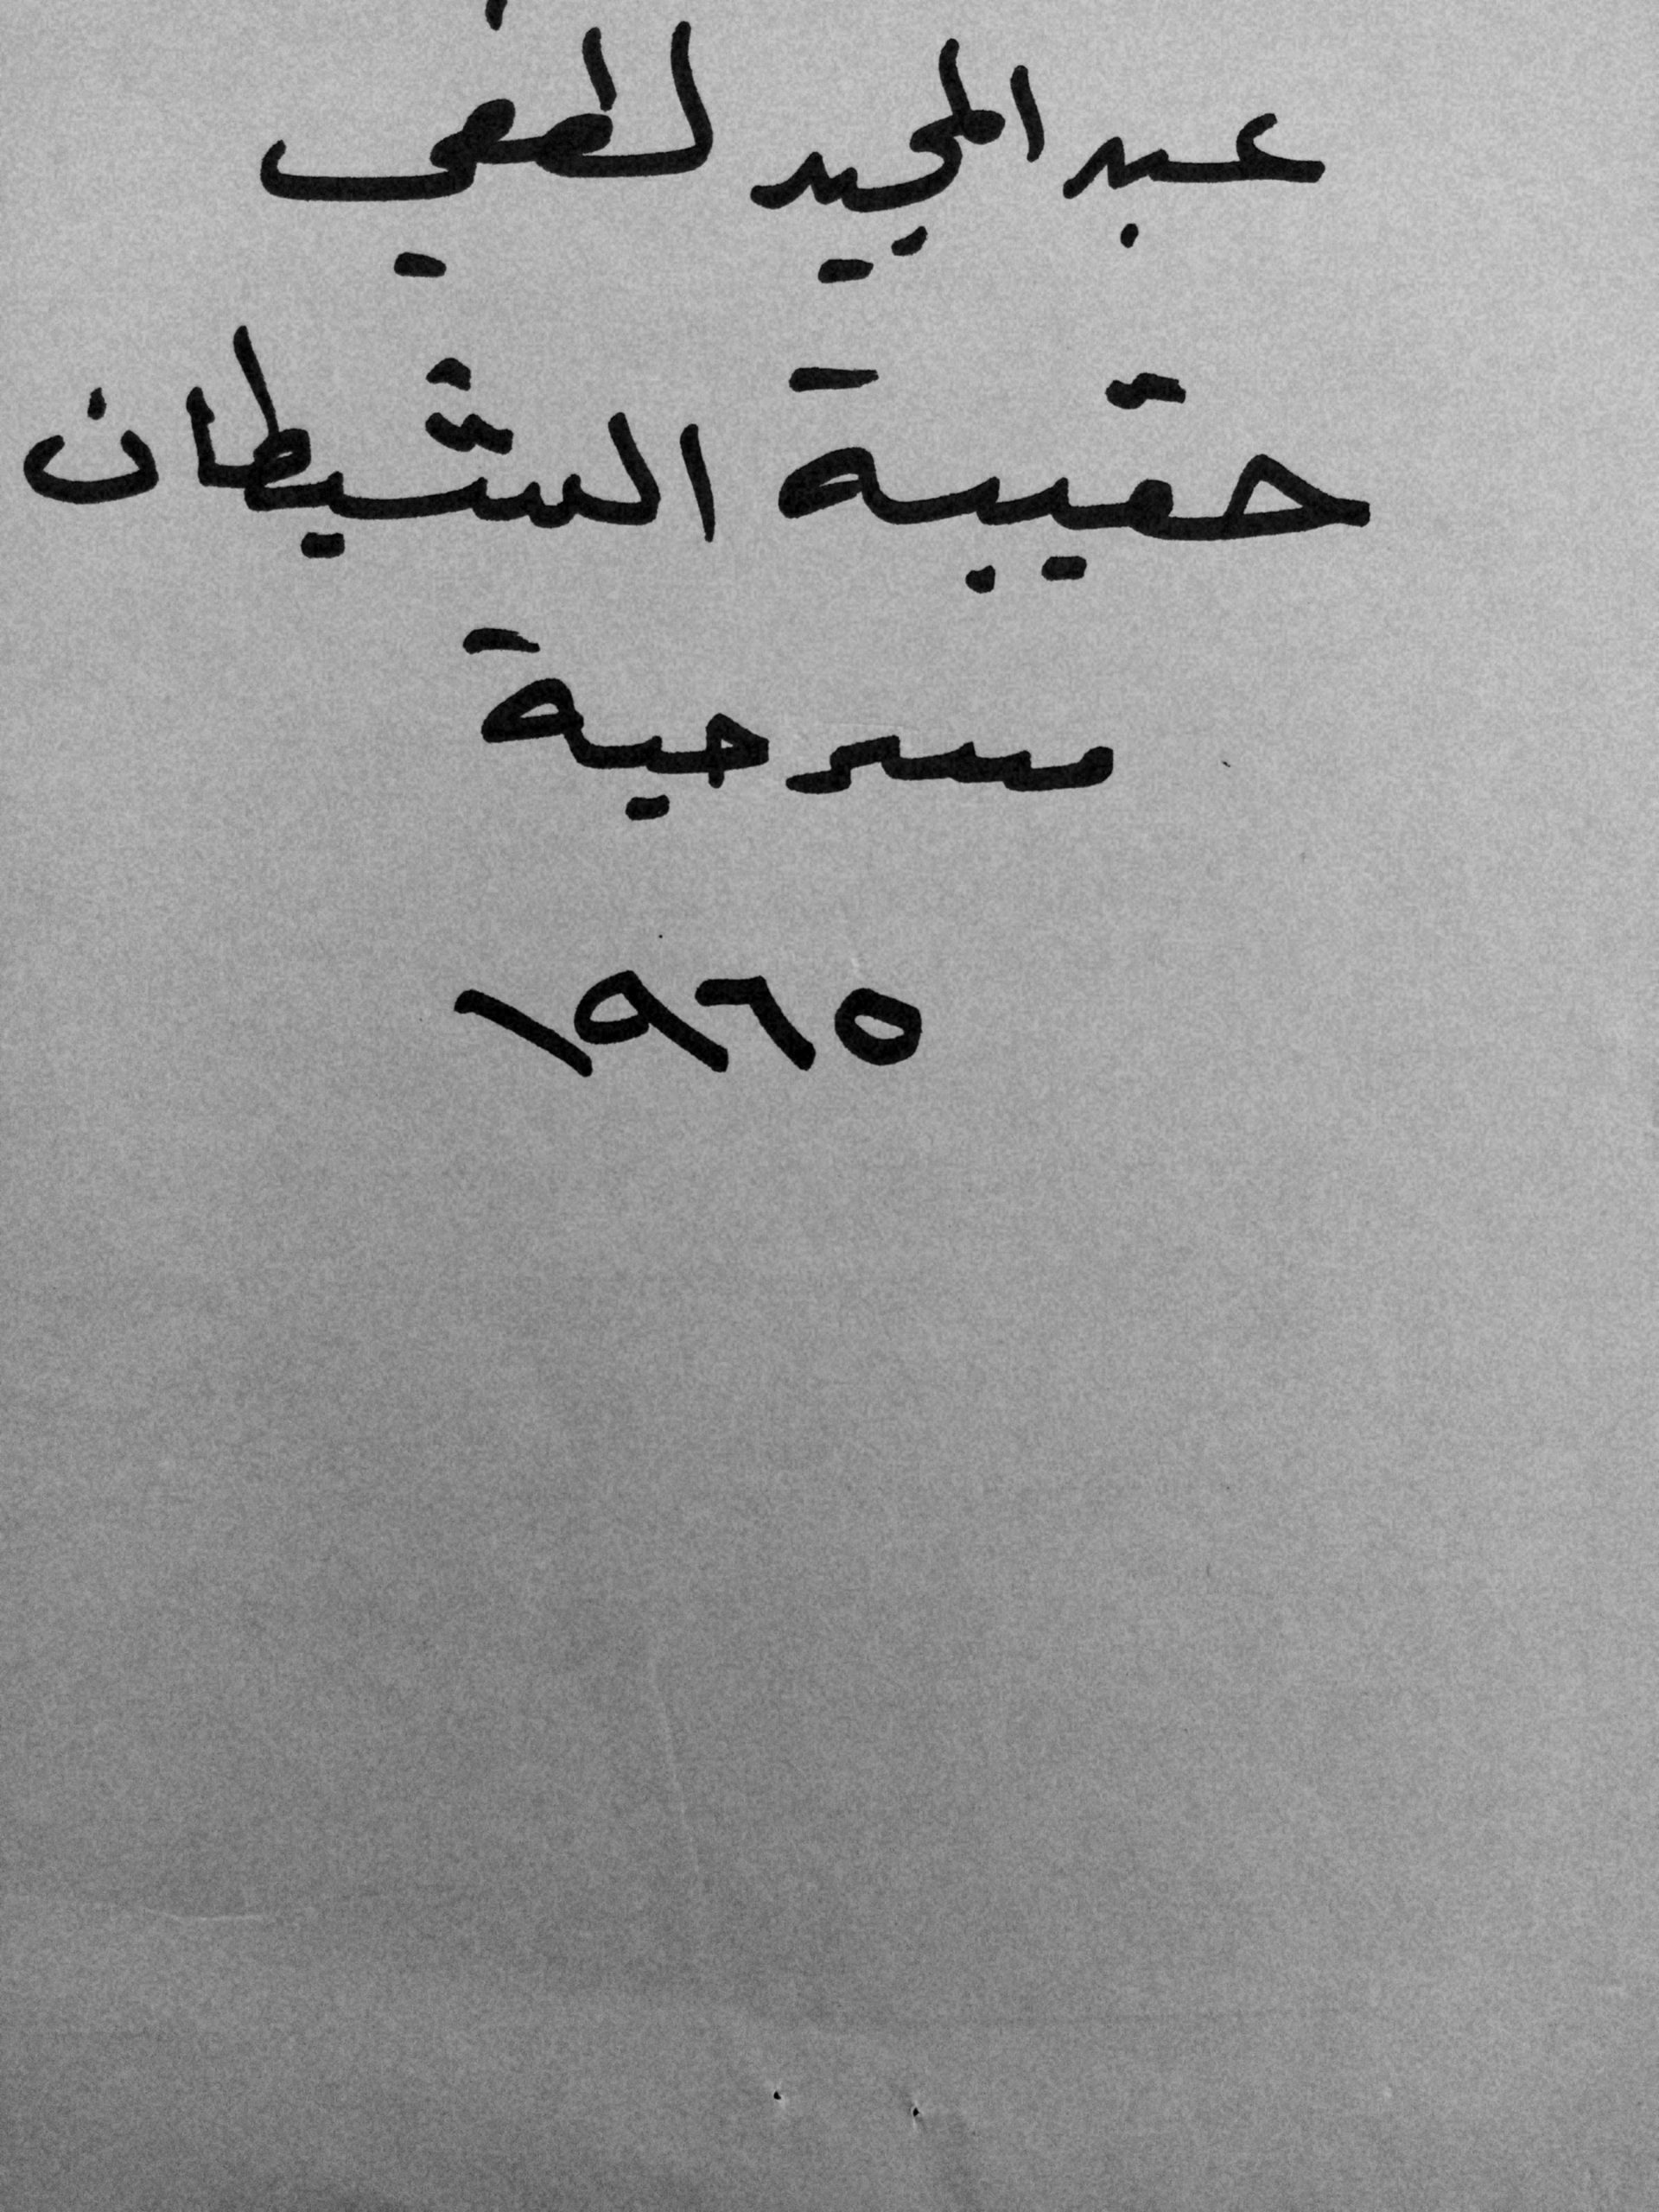 عبد المجيد لطفي
حقيبة الشيطان
مسرحية
١٩٦٥